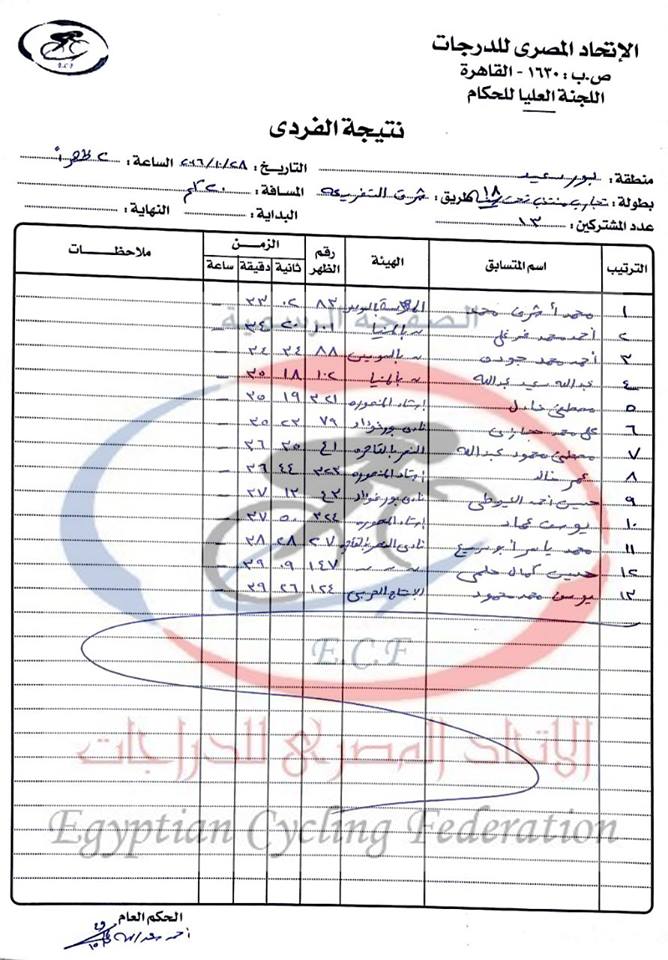 الإتحاد المصرى للدرجات
ص.ب : ١٦٣٠ - القاهرة
اللجنة العليا للحكام
E.C.F
نتيجة الفردى
منطقة : بور سعيد التاريخ : ٢٠١٦/١٠/٢٨ الساعة : ٢ ظهراً
بطولة : تجارب منتخب تحت ١٨ طريق : شرق التفريعة المسافة : ٢٠ كم
عدد المشتركين : ١٣ البداية : النهاية :
الترتيب اسم المتسابق الهيئة رقم الظهر الزمن ثانية دقيقة ساعة ملاحظات
١ محمد أشرف محمد ٨٢ ٠٢ ٣٣ –
٢ أحمد محمد فرغلى بالمنيا ١٠١ ٢٠ ٣٤ –
٣ أحمد محمد جوده بالسويس ٨٨ ٣٤ ٣٤ –
٤ عبدالله سعيد عبدالله بالمنيا ١٠٢ ١٨ ٣٥ –
٥ مصطفى عادل إستاد المنصوره ٣٢١ ١٩ ٣٥ –
٦ على محمد حجازى نادى بورفؤاد ٧٩ ٢٢ ٣٥ –
٧ مصطفى محمود عبدالله النصر بالقاهره ٤١ ٣٥ ٣٦ –
٨ عمر خالد إستاد المنصوره ٣٢٣ ٤٤ ٣٦ –
٩ حسين أحمد السيوطى نادى بورفؤاد ٤٢ ١٢ ٣٧ –
١٠ يوسف عماد إستاد المنصوره ٣٢٤ ٥٠ ٣٧ –
١١ محمد ياسر أبو سريع نادى النصر بالقاهره ٢٧ ٢٨ ٣٨ –
١٢ حسين كمال حلمى ١٤٧ ٠٩ ٣٩ –
١٣ يوسف محمد محمود الإنتاج الحربى ١٢٤ ٢٦ ٣٩ –
الصفحة الرسمية
E.C.F
الاتحاد المصرى للدراجات
Egyptian Cycling Federation
الحكم العام